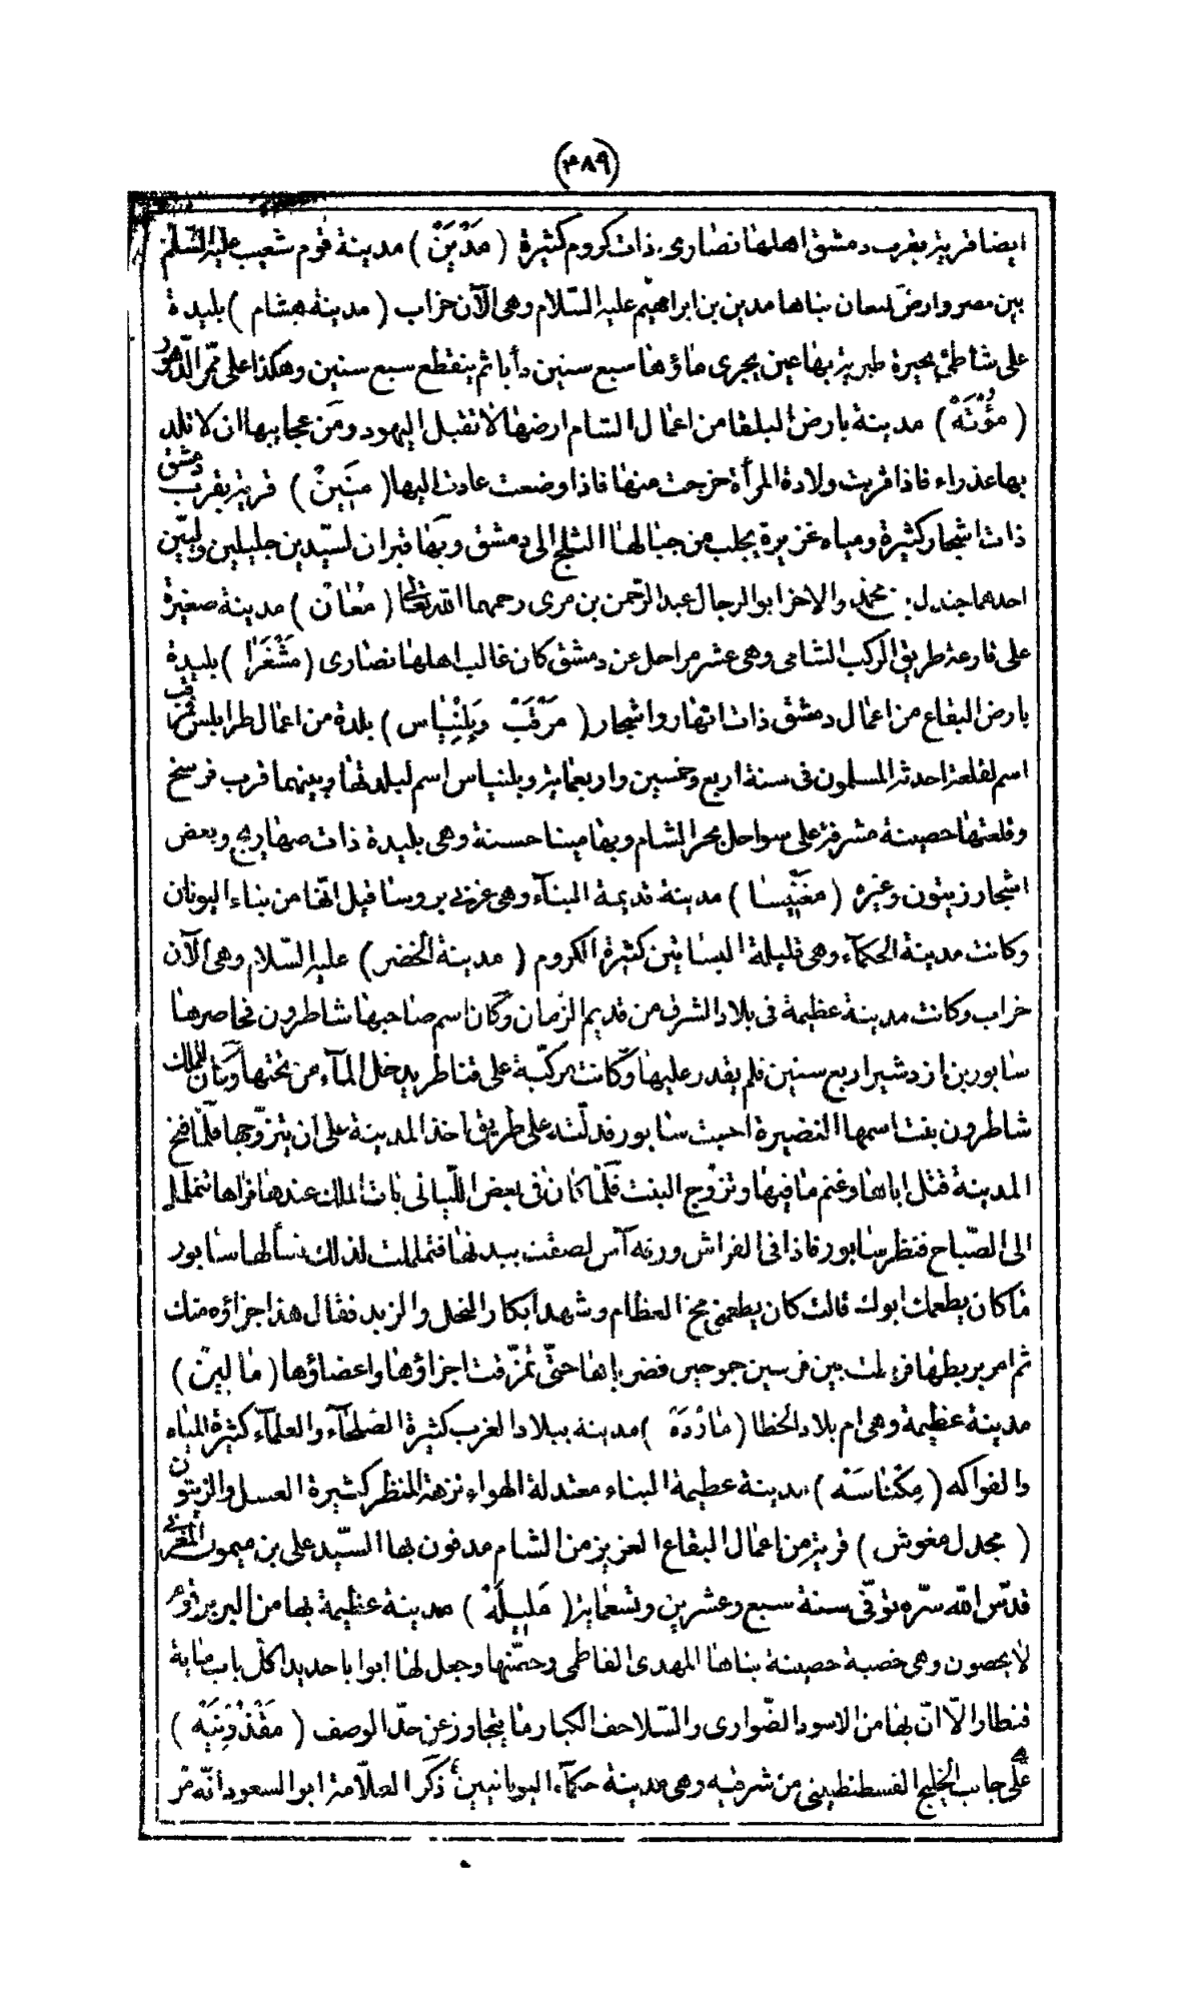 (٤٨٩)
ايضا قرية بقرب دمشق اهلها نصارى ذات كروم كثيرة ( مَدْيَنْ ) مدينة قوم شعيب عليه السّلم
بين مصر وارض معان بناها مدين بن ابراهيم عليه السّلام وهى الآن خراب ( مدينة هشام ) بليدة
على شاطئ بحيرة طبرية بها عين يجرى ماؤها سبع سنين دأبا ثم ينقطع سبع سنين وهكذا على ممّر الدّهور
( مؤُتَهْ ) مدينة بارض البلقا من اعمال الشام ارضها لا تقبل اليهود ومن عجايبها ان لا تلد
بها عذراء فاذا قربت ولادة المرأة خرجت منها فاذا وضعت عادت اليها ( مَنِينْ ) قرية بقرب دمشق
ذات اشجار كثيرة ومياه غزيرة يجلب من جبالها الثلج الى دمشق وبها قبران لسيّدين جليلين وليّين
احدهما جندل بن محمد والاخر ابو الرجال عبد الرّحمن بن مرى رحمهما الله تعالى ( مُعَانْ ) مدينة صغيرة
على قارعة طريق الركب الشامى وهى عشر مراحل عن دمشق كان غالب اهلها نصارى ( مَشْغَرَا ) بليدة
بارض البقاع من اعمال دمشق ذات انهار واشجار ( مَرْقَبْ وَبِلِنْيَاس ) بلدة من اعمال طرابلس فمرقب
اسم لقلعة احدثه المسلمون فى سنة اربع وخمسين واربعماية وبلنياس اسم لبلدتها وبينهما قرب فرسخ
وقلعتها حصينة مشرفة على سواحل بحر الشام وبها مينا حسنة وهى بليدة ذات صهاريج وبعض
اشجار زيتون وغيره ( مَغَنِّيسَا ) مدينة قديمة البنآء وهى غربى بروسا قيل انّها من بناء اليونان
وكانت مدينة الحكمآء وهى قليلة البساتين كثيرة الكروم ( مدينة الخضر ) عليه السّلام وهى الآن
خراب وكانت مدينة عظيمة فى بلاد الشرق من قديم الزمان وكان اسم صاحبها شاطرون فحاصرها
سابور بن ازدشير اربع سنين فلم يقدر عليها وكانت مركبّة على قناطر يدخل المآء من تحتها وكان للملك
شاطرون بنت اسمها النضيرة احبت سابور فدلّته على طريق اخذ المدينة على ان يتزوّجها فلمّا فتح
المدينة قتل اباها وغنم ما فيها وتزوج البنت فلمّا كان فى بعض اللّيالى بات الملك عندها فراها تتململ
الى الصّباح فنظر سابور فاذا فى الفراش ورقه آس لصقت ببدنها فتململت لذلك فسألها سابور
ما كان يطعمك ابوك قالت كان يطعمنى مخ العظام وشهد ابكار النحل والزبد فقال هذا جزاؤه منك
ثم امر بربطها بين فرسين جموحين فضربا بها حتّى تمزّقت اجزاؤها واعضاؤها ( مَالِينْ )
مدينة عظيمة وهى ام بلاد الخطا ( مَارْدَهْ ) مدينه ببلاد الغرب كثيرة الصلحآء والعلمآء كثيرة المياه
والفواكه ( مِكْنَاسَه ) مدينة عظيمة البناء معتدلة الهواء نزهة المنظر كثيرة العسل والزيتون
( مجدل مغوش ) قرية من اعمال البقاع العزيز من الشام مدفون بها السّيد على بن ميمون المغربى
قدّس الله سرّه توفّى سنة سبع وعشرين وتسعماية ( مَلِيلَهْ ) مدينة عظيمة بها من البربر قوم
لا يحصون وهى خصبة حصينة بناها المهدى الفاطمى وحصّنها وجعل لها ابوابا حديدا كل باب مناية
قنطار الّا انّ بها من الاسود الضّوارى والسّلاحف الكبار ما يتجاوز عن حدّ الوصف ( مَقْذُونِيَهْ )
هى على جانب الخليج القسطنطينى من شرقيه وهى مدينة حكمآء اليونانيين ذكر العلّامة ابو السعود انّه مرّ